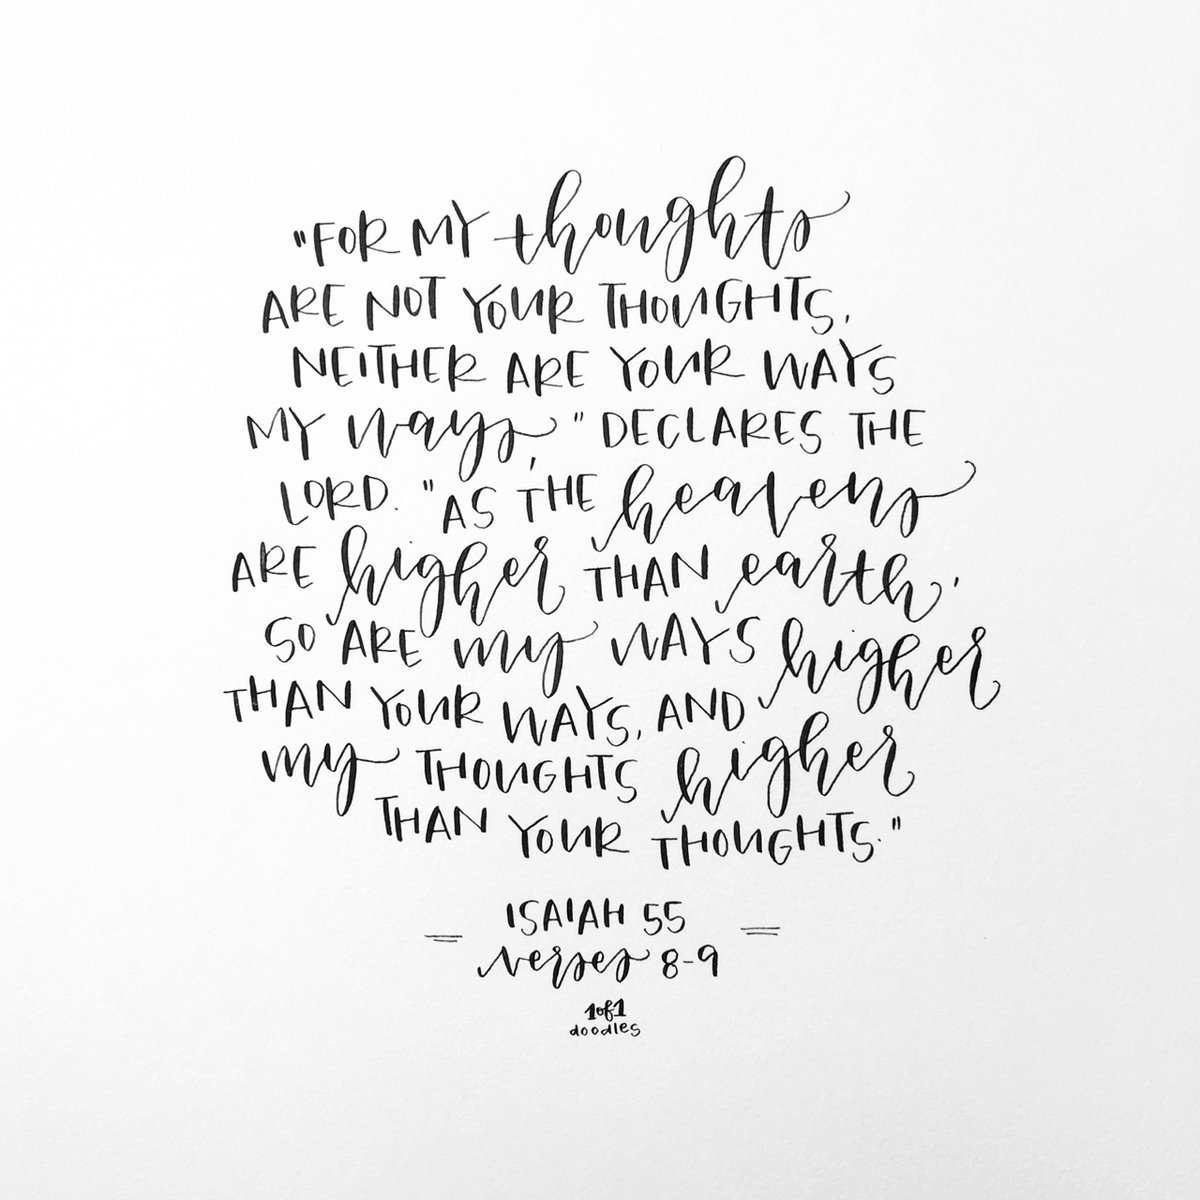 "FOR MY thoughts
ARE NOT YOUR THOUGHTS,
NEITHER ARE YOUR WAYS
MY ways," DECLARES THE
LORD. "AS THE heavens
ARE higher THAN earth,
SO ARE my WAYS higher
THAN YOUR WAYS, AND
my THOUGHTS higher
THAN YOUR THOUGHTS."
ISAIAH 55
verses 8-9
1of1
doodles